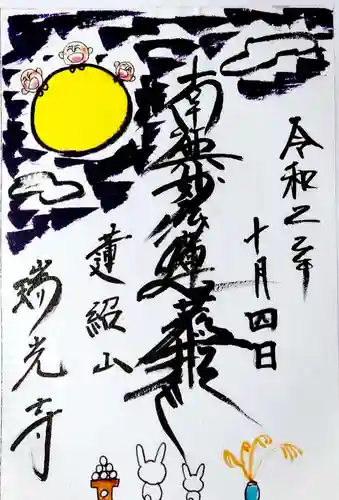 令和二年
十月四日
南無妙法蓮華経
蓮紹山
瑞光寺